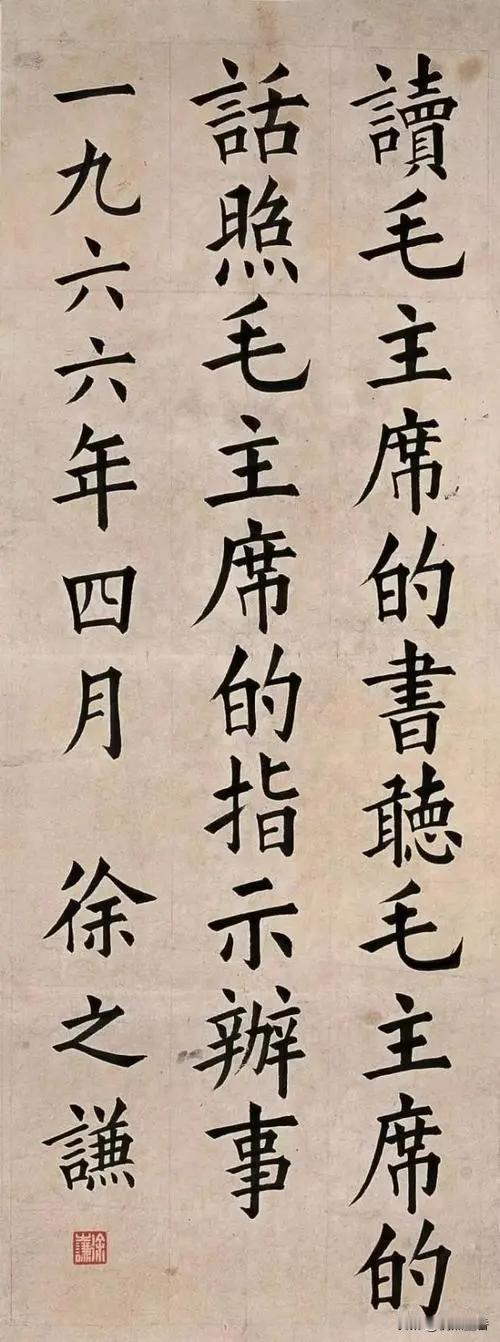 讀毛主席的書聽毛主席的
話照毛主席的指示辦事
一九六六年四月 徐之謙